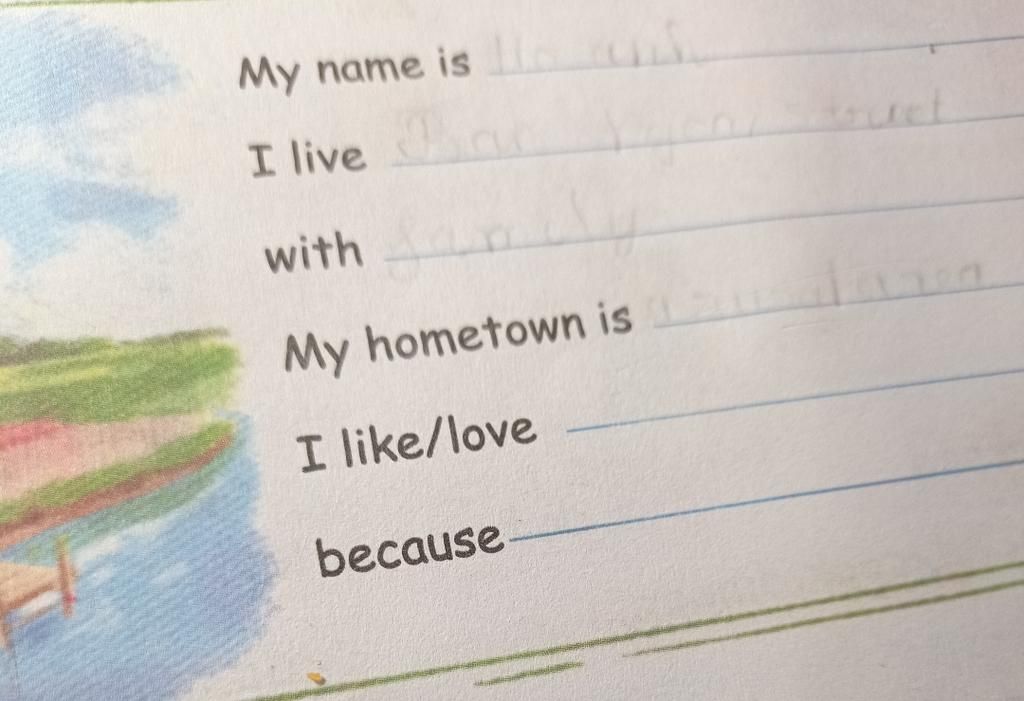 My name is
I live
with family
My hometown is
I like/love
because